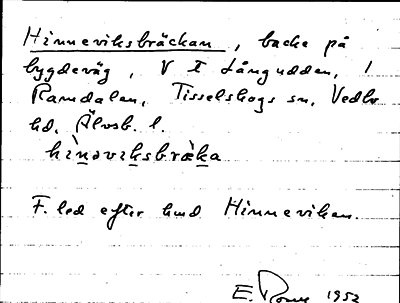 Hinneviksbräckan, backe på
bygdeväg, V t Långudden, i
Ramdalen, Tisselskogs sn, Vedbo
hd, Älvsb. l.
hìnəviksbræka
F. led efter hmd Hinneviken.
E. 1952